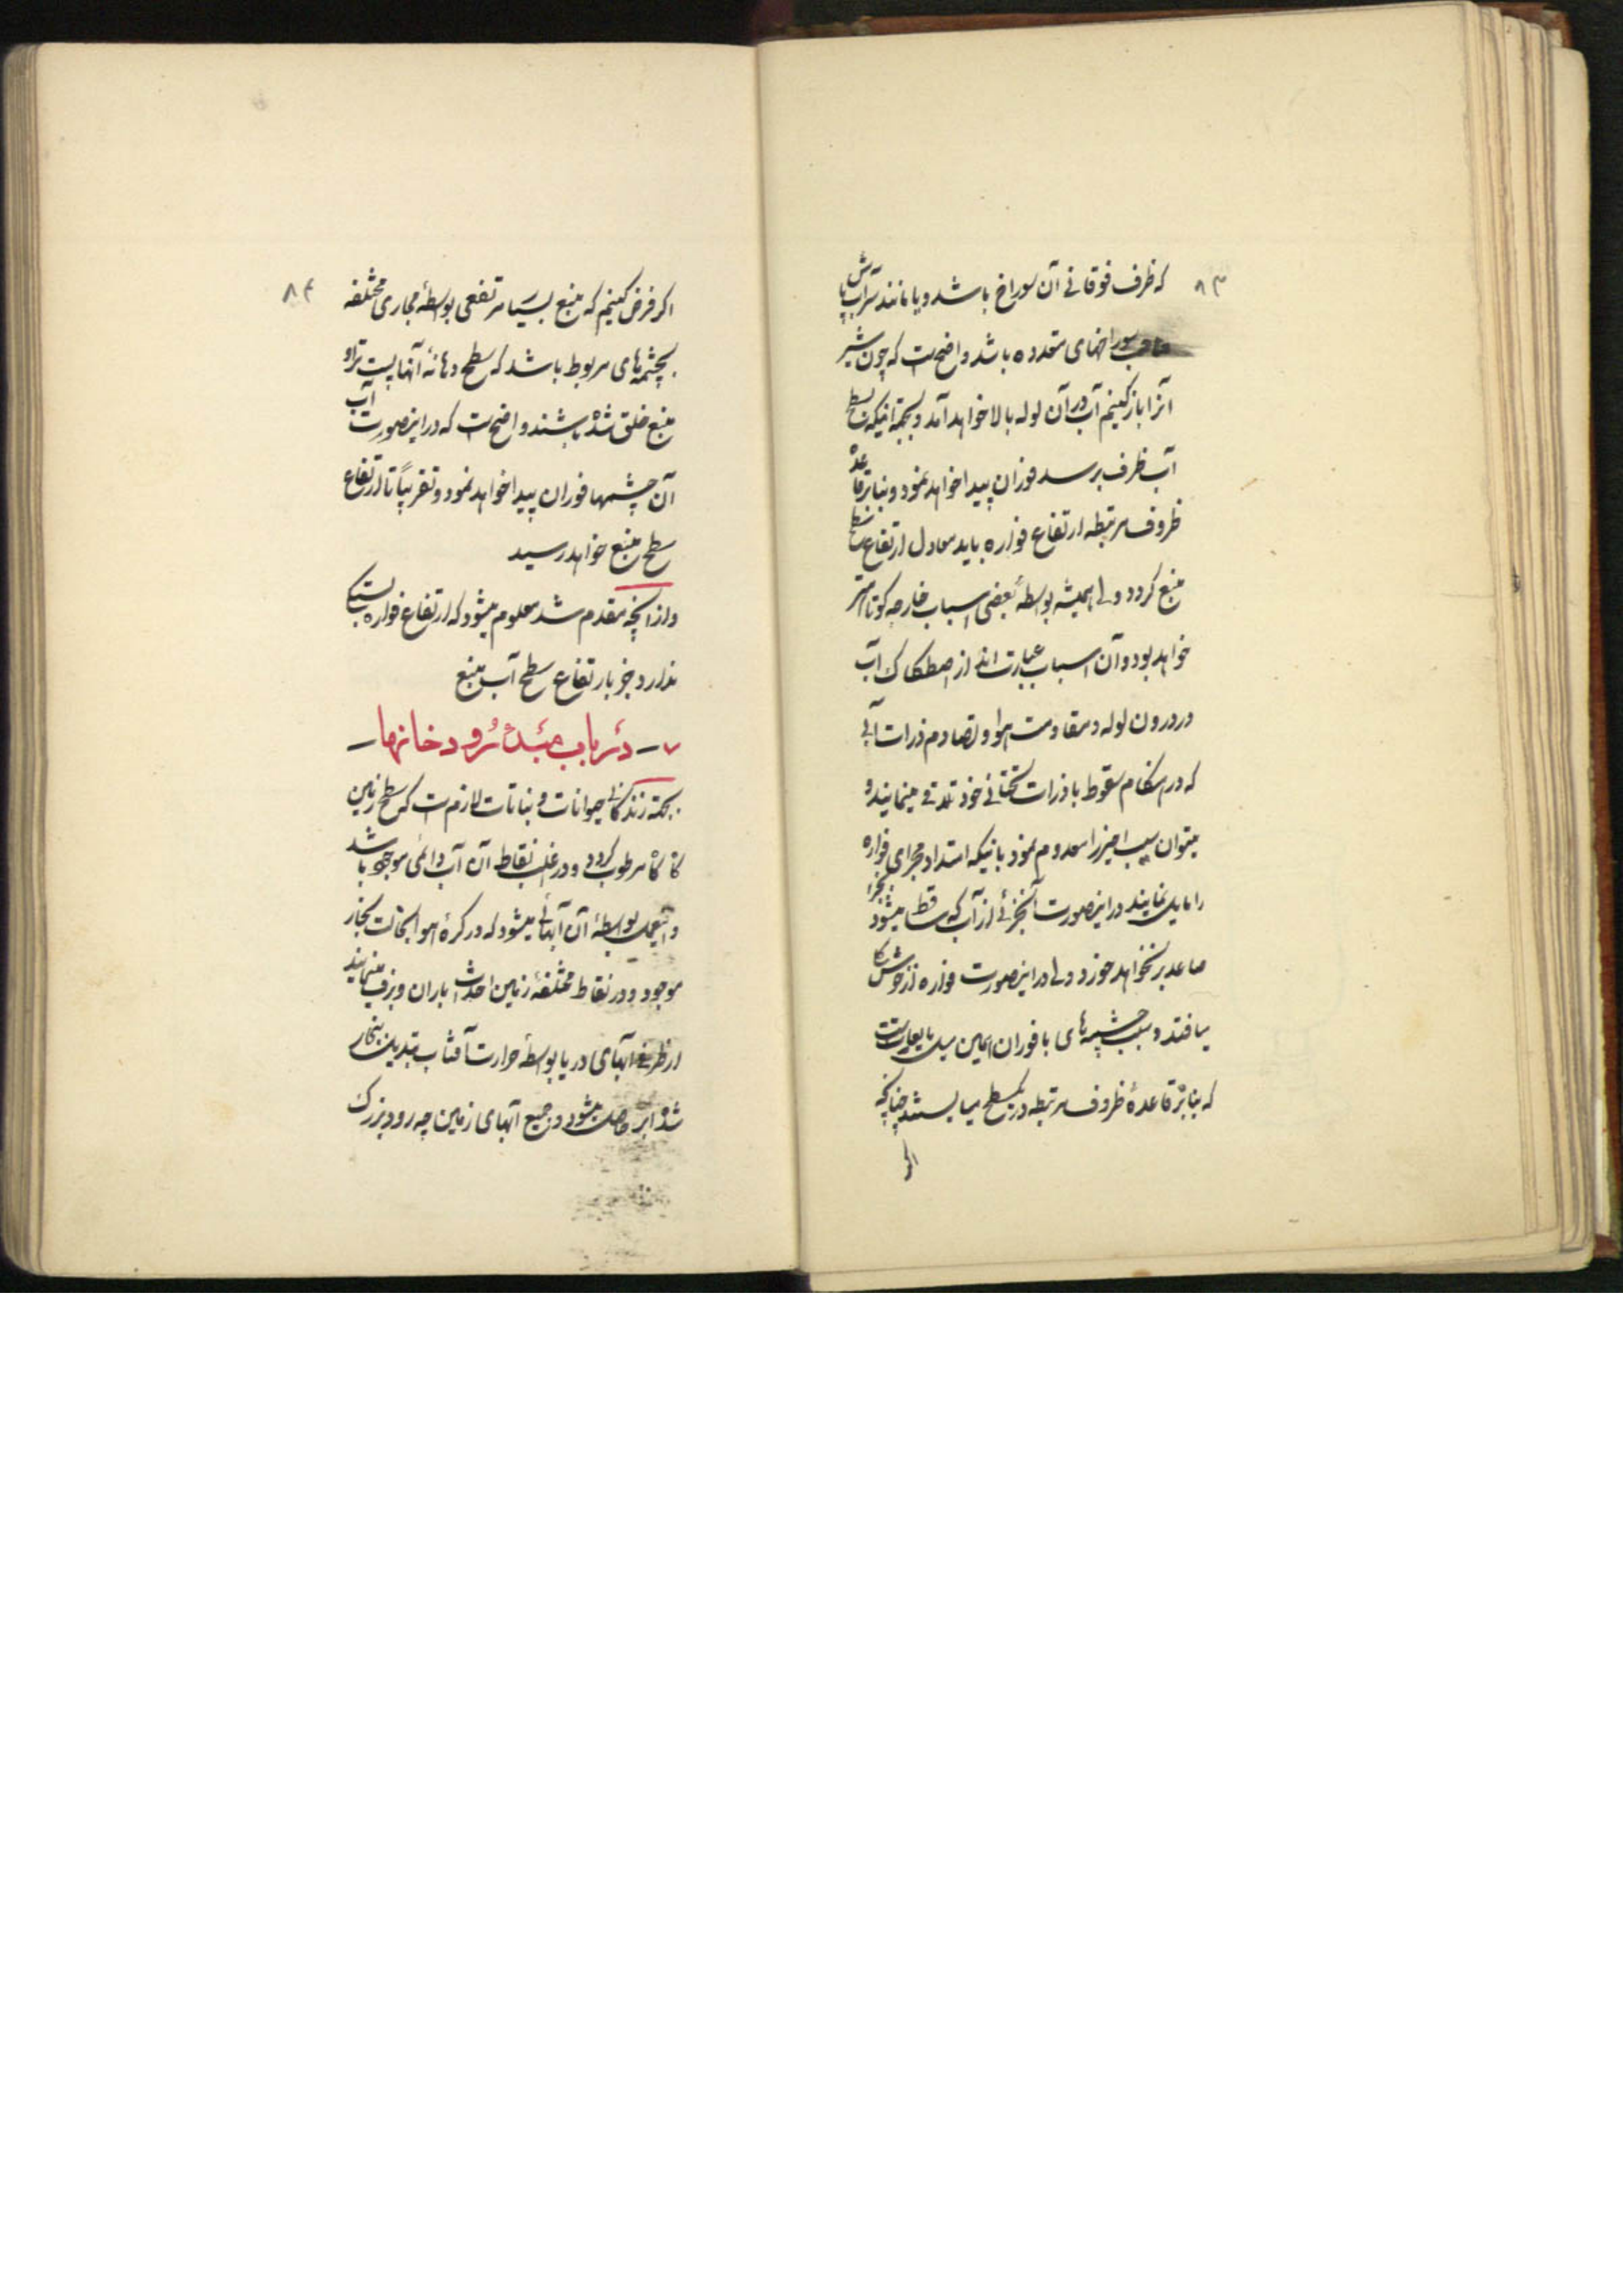 ۸۳
که ظرف فوقانی آن سوراخ باشد و یا مانند سرآب پاش
صاحب سوراخهای متعدده باشد واضح است که چون شیر
آنرا باز کنیم آب در آن لوله بالا خواهد آمد و بسطح
آب ظرف برسد فوران پیدا خواهد نمود و بنابر قاعدهٔ
ظروف مرتبطه ارتفاع فواره باید معادل ارتفاع سطح
منبع گردد ولی همیشه بواسطهٔ بعضی اسباب خارجه کوتاه‌تر
خواهد بود و آن اسباب عبارت‌اند از اصطکاک آب
در درون لوله و مقاومت هوا و تصادم ذرات آبی
که در هنگام سقوط با ذرات تحتانی خود تلاقی مینمایند و
میتوان سبب اخیر را معدوم نمود باینکه امتداد مجرای فواره
را مایل نمایند در اینصورت آنجزئی از آب که ساقط میشود
صاعد بر نخواهد خورد ولی در اینصورت فواره از
میافتد و سبب چشمه‌های با فوران همین
که بنابر قاعدهٔ ظروف مرتبطه در یکسطح میایستند چنانچه
اگر
۸۴
اگر فرض کنیم که منبع بسیار مرتفعی بواسطهٔ مجاری مختلفه
بچشمه‌های مربوط باشد که سطح دهانهٔ آنها پست‌تر از
منبع خلق شده باشند واضح است که در اینصورت آب
آن چشمها فوران پیدا خواهد نمود و تقریباً تا ارتفاع
سطح منبع خواهد رسید
و از آنچه مقدم شد معلوم میشود که ارتفاع فواره بستگی
ندارد جز بارتفاع سطح آب منبع
۷ – در باب مبدء رودخانها –
بجهة زندگانی حیوانات و نباتات لازم است که سطح زمین
گاه گاه مرطوب گردد و در اغلب نقاط آن آب دائمی موجود باشد
و اینعمل بواسطهٔ آن آبهائی میشود که در کرهٔ هوا بحالت بخار
موجود و در نقاط مختلفهٔ زمین احداث باران و برف مینمایند
از طرفی آبهای دریا بواسطهٔ حرارت آفتاب تبدیل ببخار
شده ابر حاصل میشود و جمیع آبهای زمین چه رود بزرگ